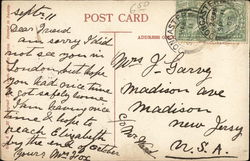 Septr 11
650
POST CARD
Dear Friend
am sorry I did
not see you in
London, but hope
you had nice time
& got safely home
I am having nice
time & hope to
reach Elizabeth
by the end of October
Yours, Mrs Fox
ADDRESS
Mrs J. Garvy
Madison ave
Madison
New Jersy
U.S.A.
c/o Mr